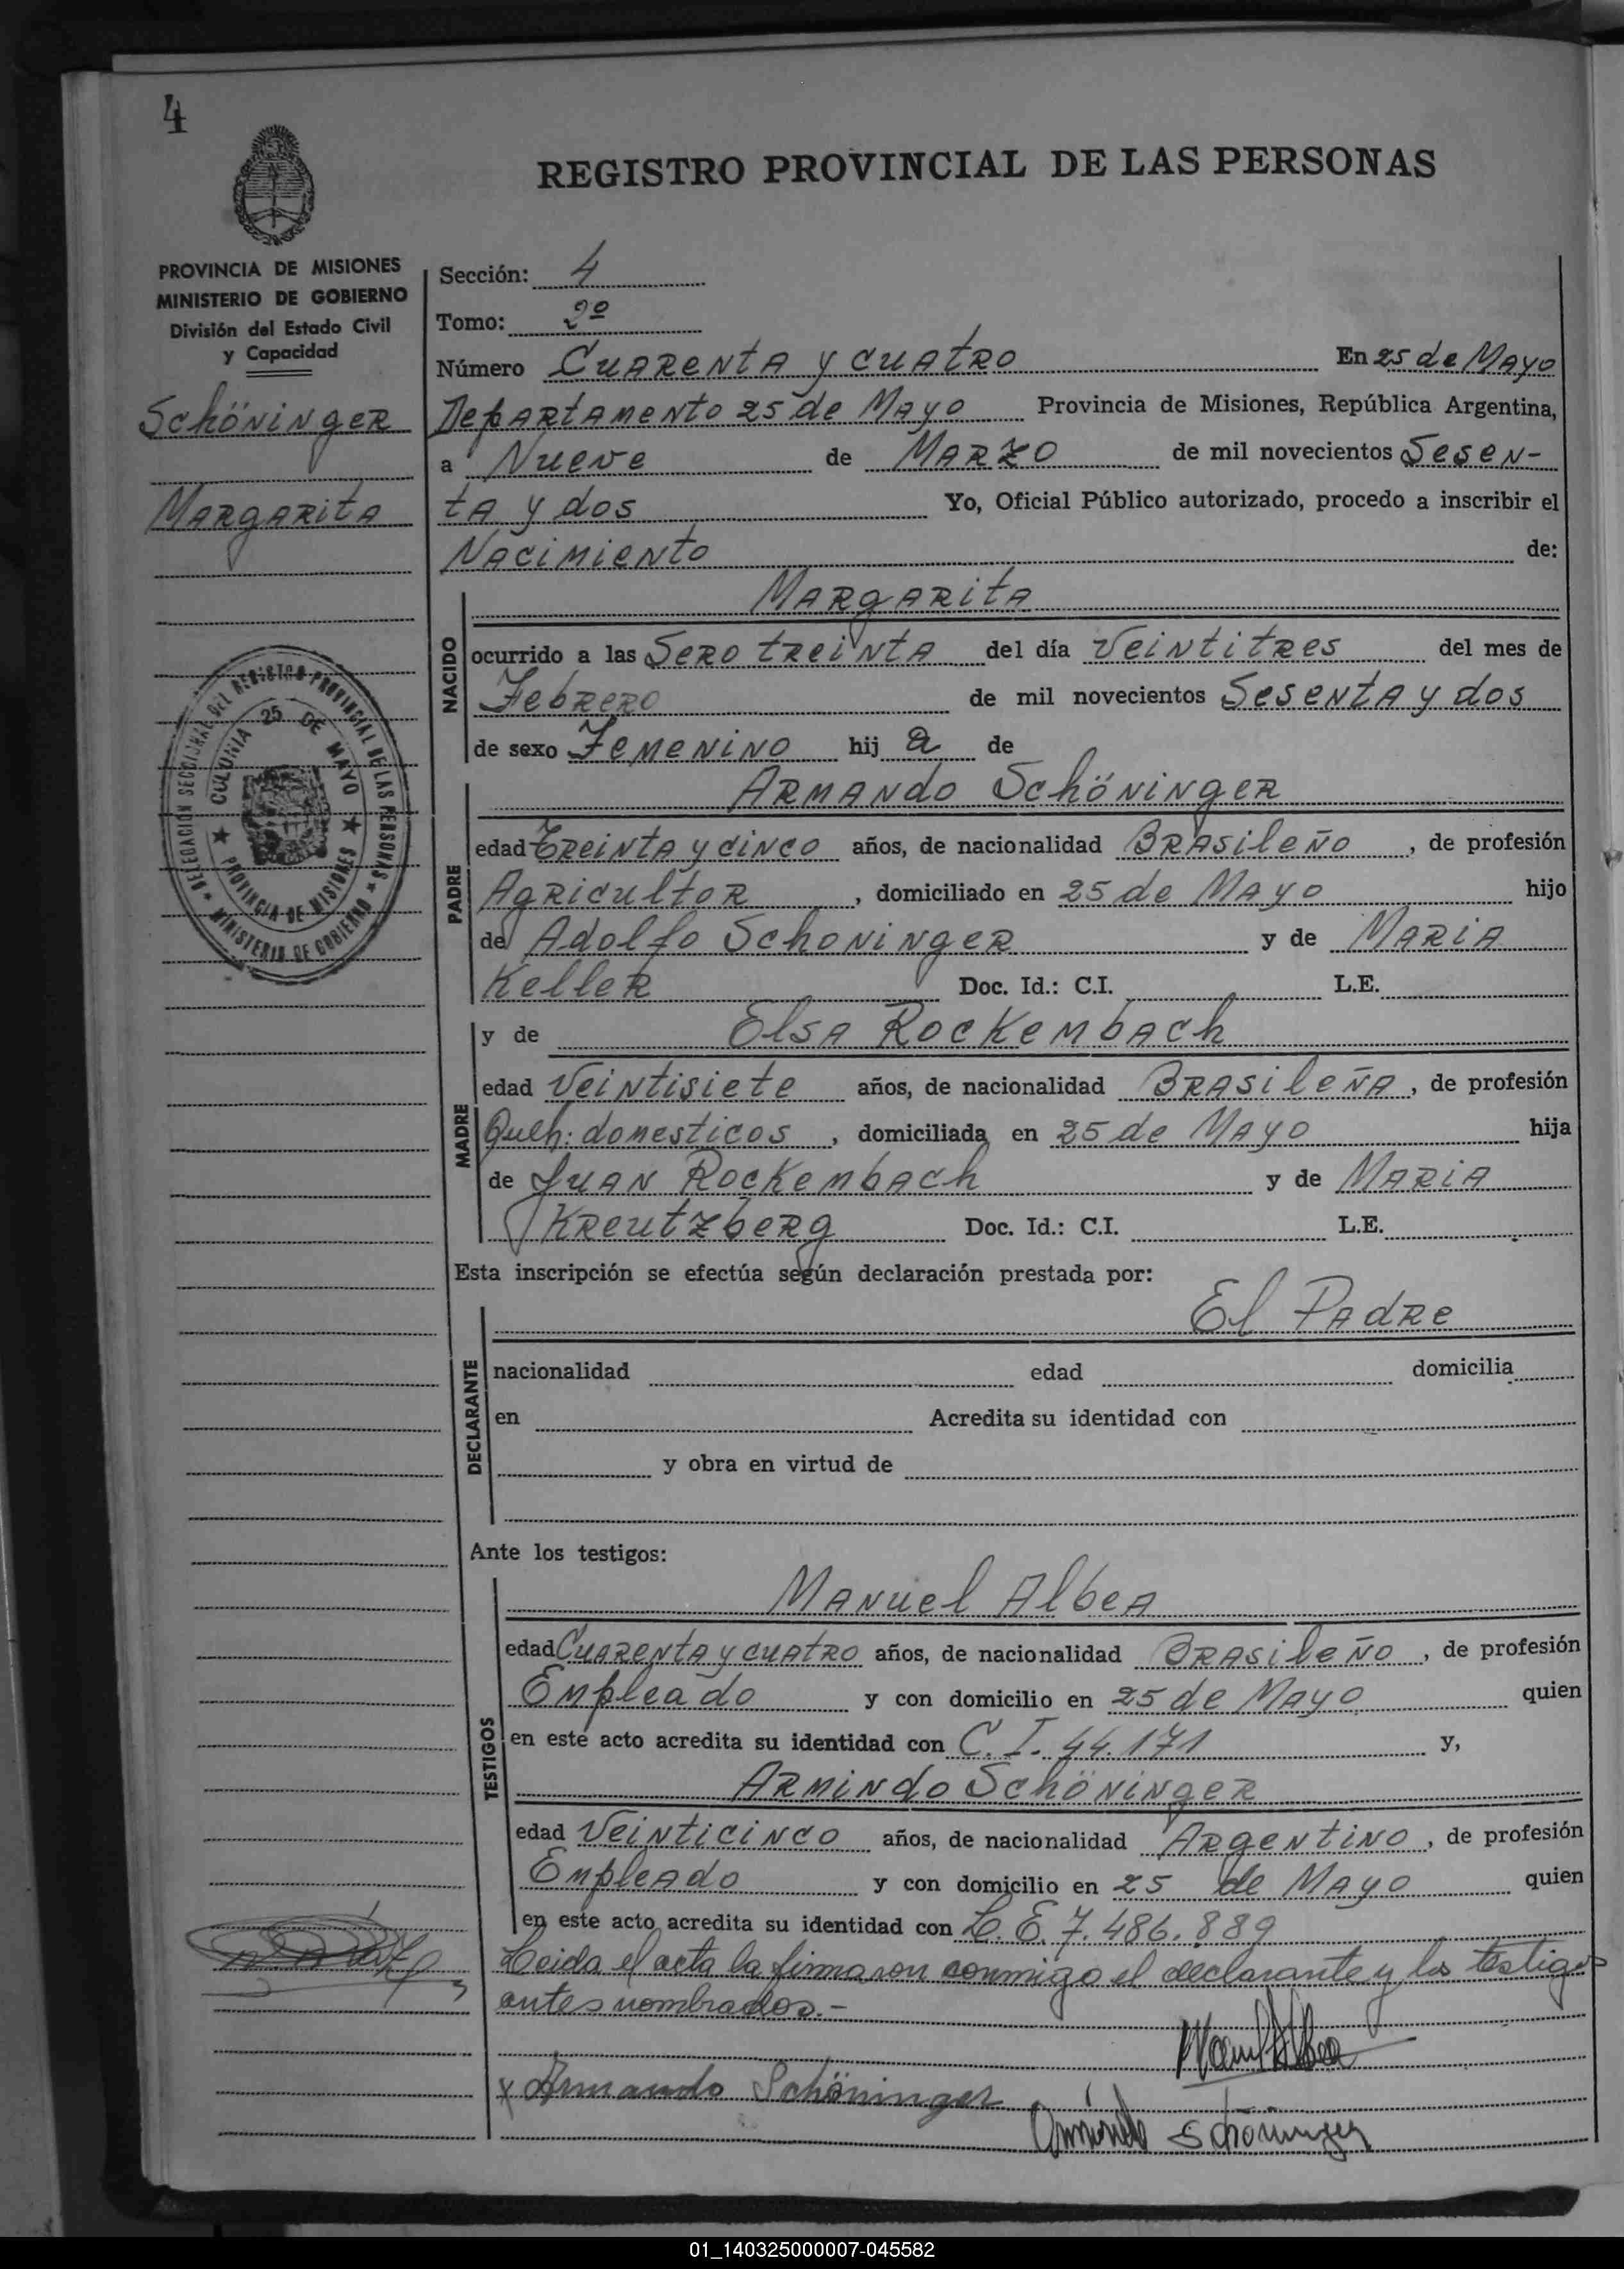 4
REGISTRO PROVINCIAL DE LAS PERSONAS
PROVINCIA DE MISIONES
MINISTERIO DE GOBIERNO
División del Estado Civil
y Capacidad
Schöninger
Margarita
DELEGACIÓN SECCIONAL DEL REGISTRO PROVINCIAL DE LAS PERSONAS
COLONIA 25 DE MAYO
PROVINCIA DE MISIONES
MINISTERIO DE GOBIERNO
Sección: 4
Tomo: 2º
Número Cuarenta y cuatro En 25 de Mayo
Departamento 25 de Mayo Provincia de Misiones, República Argentina,
a Nueve de Marzo de mil novecientos Sesen-
ta y dos Yo, Oficial Público autorizado, procedo a inscribir el
Nacimiento de:
NACIDO
Margarita
ocurrido a las Sero treinta del día Veintitres del mes de
Febrero de mil novecientos Sesenta y dos
de sexo Femenino hij a de
PADRE
Armando Schöninger
edad Treinta y cinco años, de nacionalidad Brasileño, de profesión
Agricultor, domiciliado en 25 de Mayo hijo
de Adolfo Schoninger y de Maria
Keller Doc. Id.: C.I. L.E.
MADRE
y de Elsa Rockembach
edad Veintisiete años, de nacionalidad Brasileña, de profesión
Queh: domesticos, domiciliada en 25 de Mayo hija
de Juan Rockembach y de Maria
Kreutzberg Doc. Id.: C.I. L.E.
Esta inscripción se efectúa según declaración prestada por:
DECLARANTE
El Padre
nacionalidad edad domicilia
en Acredita su identidad con
y obra en virtud de
Ante los testigos:
TESTIGOS
Manuel Albea
edad Cuarenta y cuatro años, de nacionalidad Brasileño, de profesión
Empleado y con domicilio en 25 de Mayo quien
en este acto acredita su identidad con C. I. 44.171 y,
Armindo Schöninger
edad Veinticinco años, de nacionalidad Argentino, de profesión
Empleado y con domicilio en 25 de Mayo quien
en este acto acredita su identidad con L. E. 7.486.889
Leida el acta la firmaron conmigo el declarante y los testigos
antes nombrados.-
Manuel Albea
x Armando Schöninger
Armindo Schöninger
01_140325000007-045582